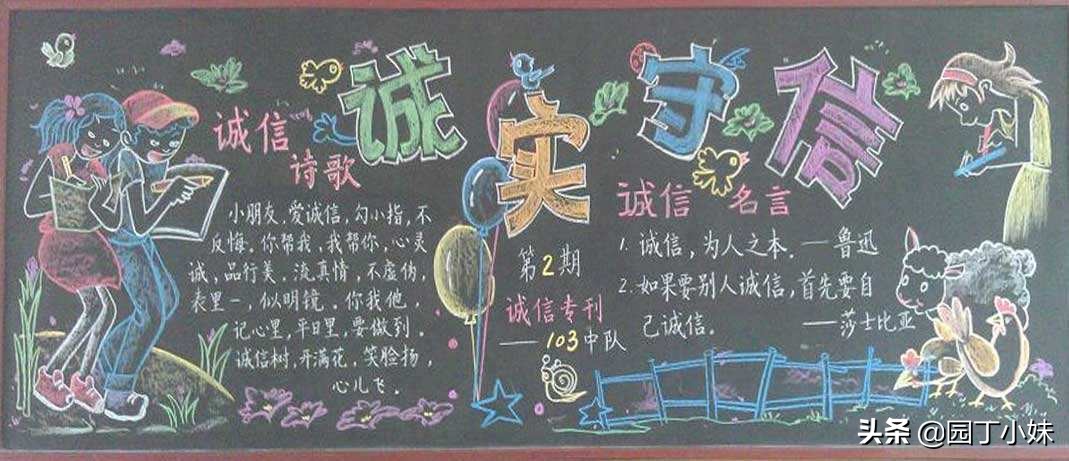 诚实守信
诚信
诗歌
小朋友，爱诚信，勾小指，不
反悔，你帮我，我帮你，心灵
诚，品行美。流真情，不虚伪，
表里一，似明镜。你我他，
记心里，平日里，要做到。
诚信树，开满花，笑脸扬，
心儿飞。
第2期
诚信专刊
——103中队
诚信 名言
1. 诚信，为人之本. —鲁迅
2. 如果要别人诚信，首先要自
己诚信。 ——莎士比亚
头条 @园丁小妹